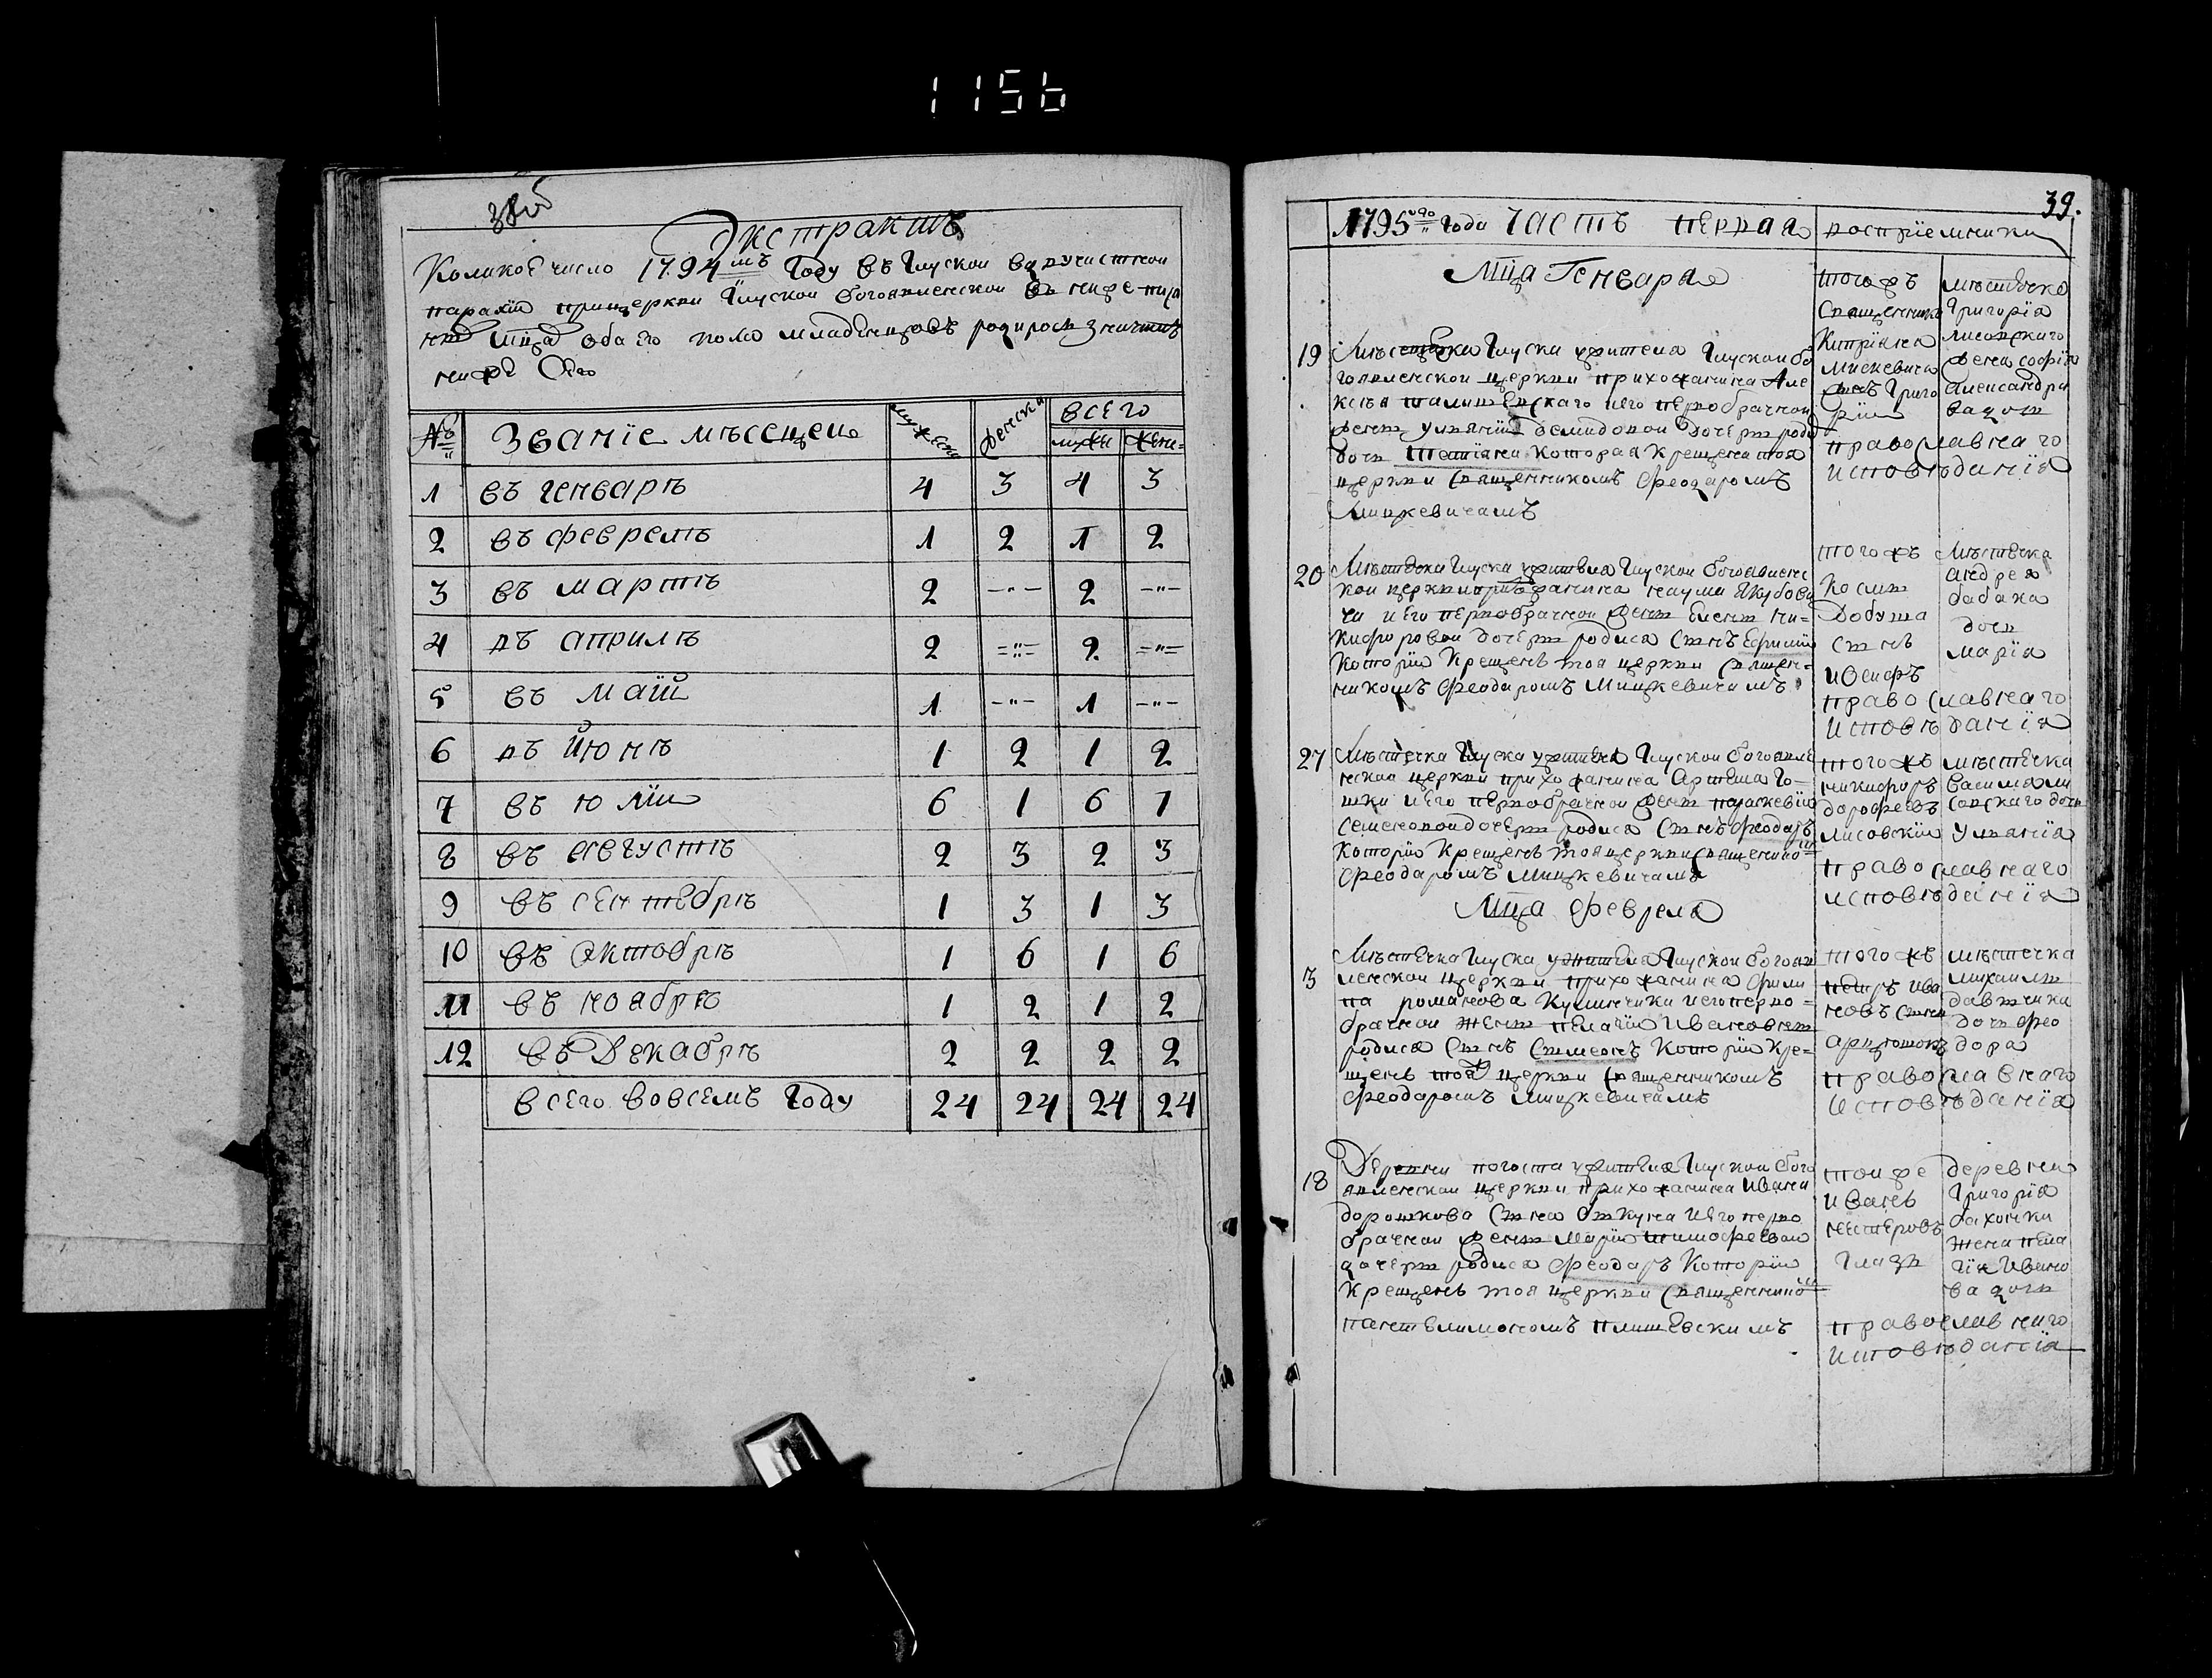 1156
38об
Экстрактъ
Коликое число 1794мъ Году въ Глуской
парахіи прицеркви Глуской богоявленской въ ниже писа
обаего полу младенцовъ родирось значитъ
ниже сего
№ Званіе месецей мужеска женска всего
мужес женс
1 въ генваръ 4 3 4 3
2 въ февремъ 1 2 1 2
3 въ мартъ 2 -"- 2 -"-
4 въ априлъ 2 ="= 2 ="=
5 въ маїй 1 -"- 1 -"-
6 въ їюнъ 1 2 1 2
7 въ юлии 6 1 6 1
8 въ августъ 2 3 2 3
9 въ сентебръ 1 3 1 3
10 въ октобръ 1 6 1 6
11 въ ноябръ 1 2 1 2
12 въ Декабръ 2 2 2 2
всего вовсемъ Году 24 24 24 24
39.
1795го года Часть первая восприемники
Мца Генваря
19 Мъстечка Глуска жителя Глуской бо
гоявленской церкви прихожанина Але
ксъя его первобрачной
жены Улянїи Демидовой дочеры роди
дочь Татїана Которая Крещена тоя
церкви священникомъ Феодаромъ
Мицкевичамъ
тогожъ
священника
Киприяна
Мискевича
сынъ Григо
рїй
мъстечка
Григорїя
лисовскаго
жена софїя
Александра
ва дочь
православнаго
исповъданїя
20 Мъстечка Глуска жителя Глуской богоявленс
кой церкви прихожанина наума Якубови
ча и его первобрачной жены Елены Ни-
кифоровой дочеры родися сынъ Ефимїй
Которїй Крещенъ тоя церкви священ-
никомъ Феодаромъ Мицкевичамъ
тогожъ
Козмы
Добуша
сынъ
иосифъ
мъстечка
андрея
бабака
дочь
марїя
православнаго
исповъданїя
27 Мъстечка Глуска жителя Глуской богоявле
нской церкви прихожанина Артема Го-
шки и его первобрачной жены параскевїи
Семеновой дочеры родися сынъ Феодаръ
Которїй Крещенъ тоя церкви священнико
Феодаромъ Мицкевичамъ
тогожъ
никифоръ
дорофеевъ
лисовскїй
мъстечка
василя ли
совскаго дочь
Улянїя
православнаго
исповъданїя
Мца Февреля
3 Мъстечка Глуска ужителя Глуской богояв
ленской церкви прихожанина Фили
па романова Кушнчика и его перво-
брачной жены пелагїи Ивановны
родися сынъ Сымеонъ Которїй Кре-
щенъ тоя церкви священникомъ
Феодаромъ Мицкевичамъ
тогожъ
петръ ива
новъ сынъ
мъстечка
михаилы
дочь фео
дора
православнаго
исповъданїя
18 Деревни погоста жителя Глуской бого
явленской церкви прихожанина Ивана
дорошкова сына Откуна и его перво
брачной жены Марїи тимофеевай
дачеры родися Феодаръ Которїй
Крещенъ тоя церкви священнико
пантелимономъ плишевскимъ
тойже
иванъ
нестеровъ
Глазъ
деревни
Григорїя
бахонки
жена пела
гїя Ивано
ва дочь
православнаго
исповъданїя